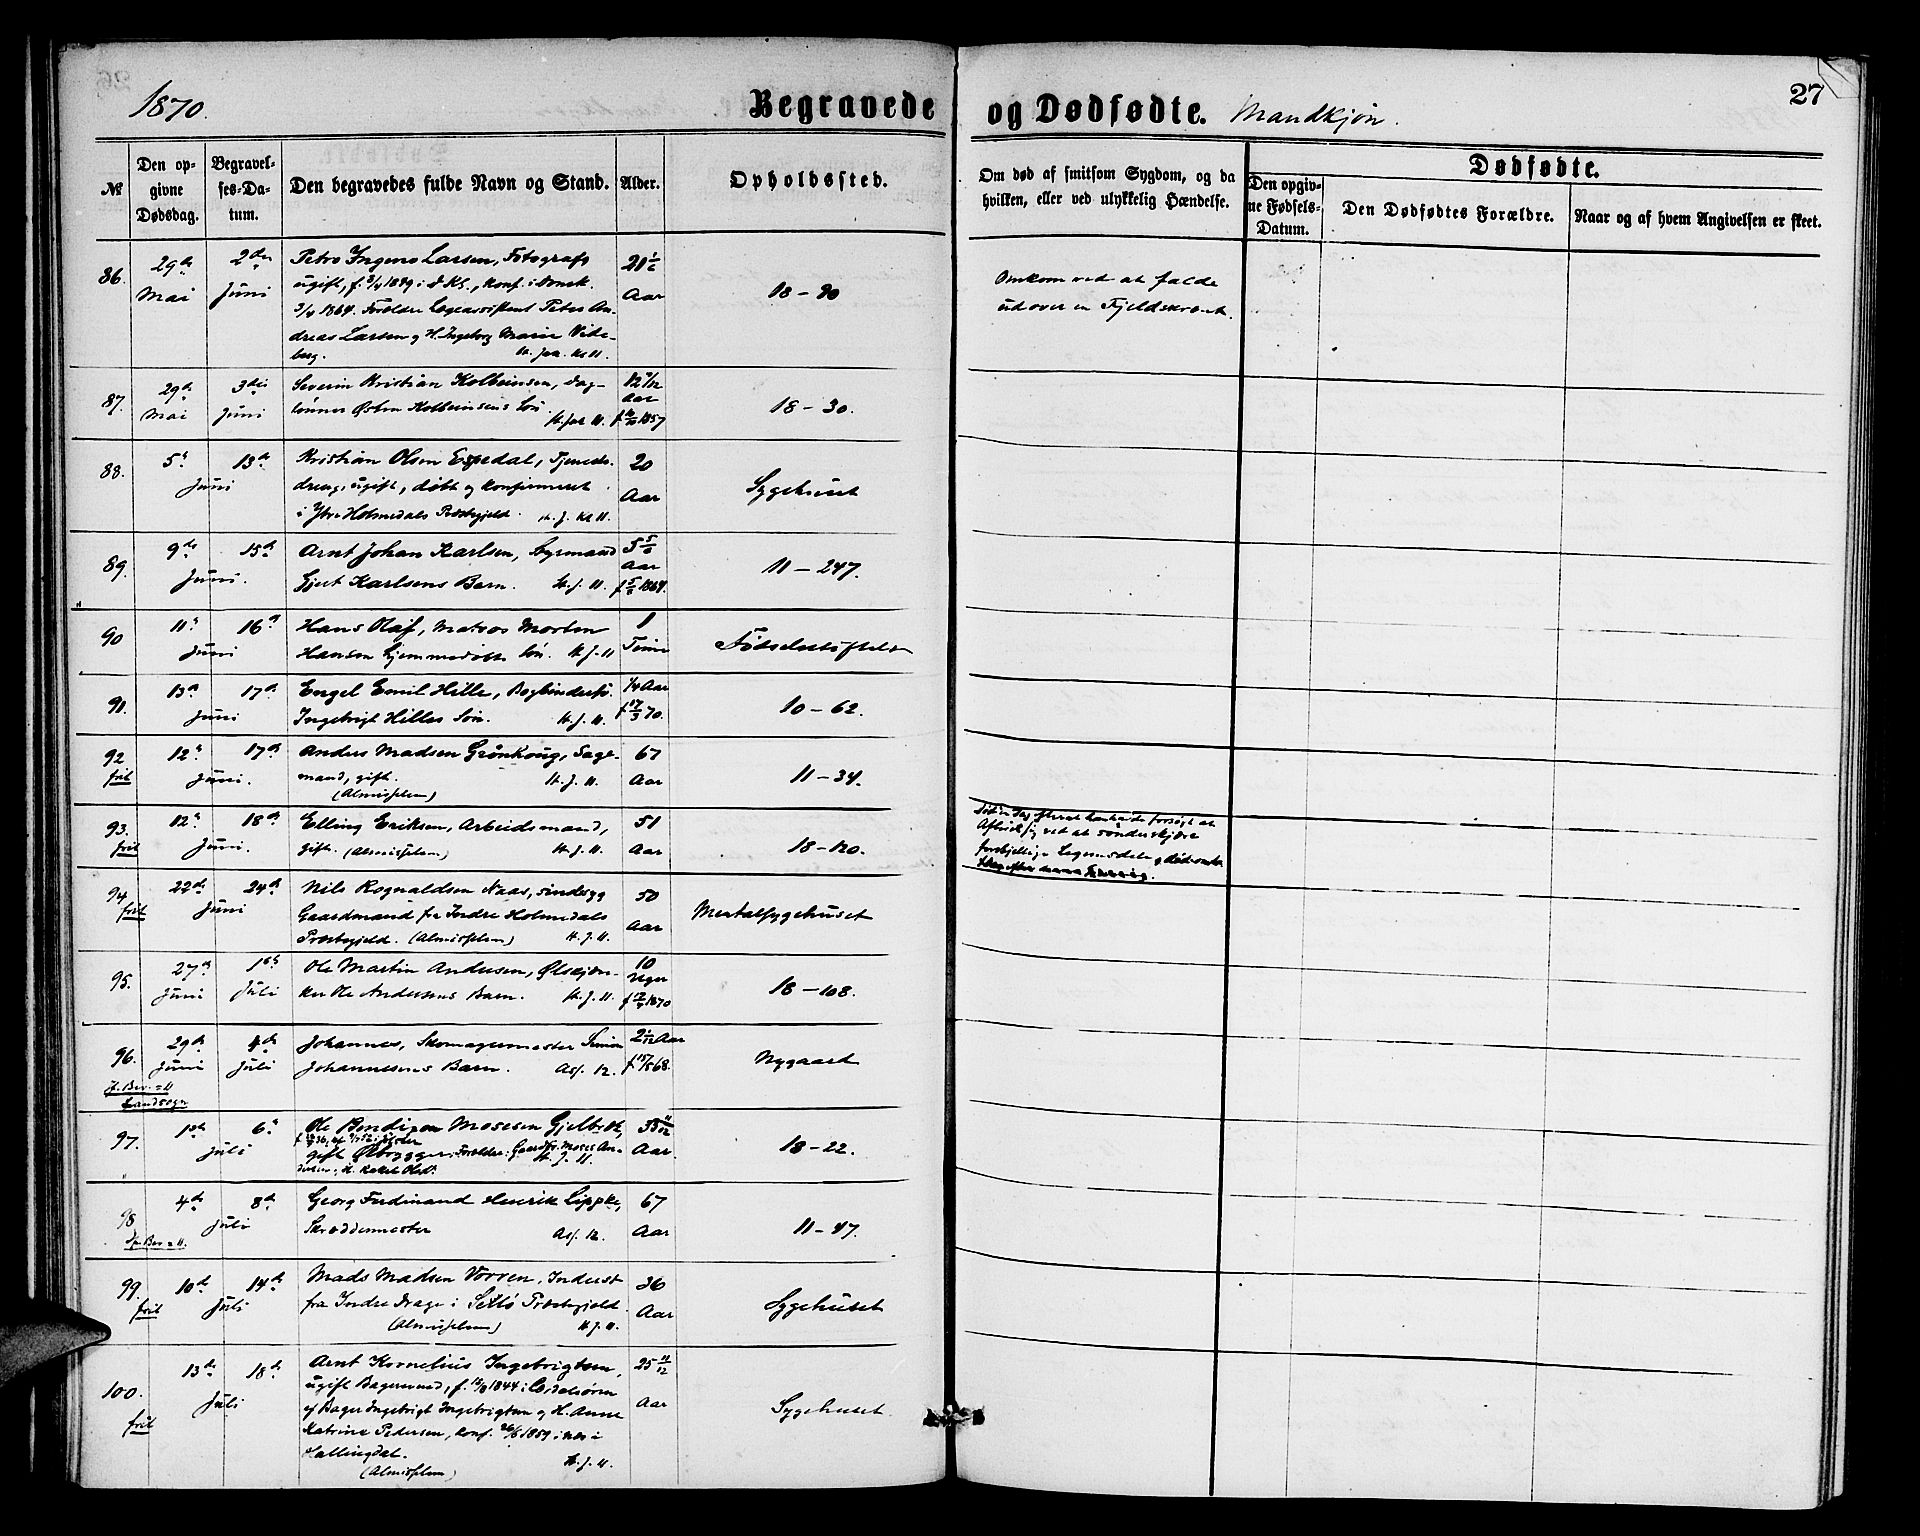 1870.
Begravede og Dødfødte. Mandkjøn.
27
№
Den opgivne Dødsdag.
Begravelses-Datum.
Den begravedes fulde Navn og Stand.
Alder.
Opholdssted.
Om død af smitsom Sygdom, og da hvilken, eller ved ulykkelig Hændelse.
Dødfødte.
Den opgivne Fødsels-Datum.
Den Dødfødtes Forældre.
Naar og af hvem Angivelsen er skeet.
86. 29de Mai 2den Juni
Petro Ingens Larsen, Fotograf
ugift, f. 3/4 1849 i d. Kl., Konf. i Domk.
3/4 1864. Forældre Lægeassistent Peter An-
dreas Larsen og H. Ingeborg Marie Vide-
berg.
21 1/6 Aar
18-90
Omkom ved at falde
ud over en Fjeldskrænt.
87. 29de Mai 3die Juni
Severin Kristian Kolbeinsen, Dag-
lønner Østen Kolbeinsens Søn.
12 7/12 Aar
1857
18-30.
88. 5te 13de Juni
Kristian Olsen Espedal, Tjeneste-
dreng, ugift, døbt og konfirmeret
i Ytre Holmedals Præstegjeld.
20 Aar
Sygehuset
89. 9de 15de Juni.
Arnt Johan Karlsen, Styrmand
Gjert Karlsens Barn. H. J. H.
5 5/6 Aar
1864.
11-247.
90 11te 16de Juni
Hans Olaf, Matros Morten
Hansen Hjemmedøbte Søn. H. J. H
1 Time
Fødselsstiftelse
91. 13de 17de Juni
Engel Emil Hille, Bogbindersv.
Ingebrigt Hilles Søn. H. J. H.
1/4 Aar
f 17/3 70.
10-62.
92 frit 12te 17de Juni.
Anders Madsen Grønhoug, Sage-
mand, gift. H. J. H.
(Almisselem)
67 Aar
11-34.
93. frit 12te 18de Juni.
Elling Eriksen, Arbeidsmand,
gift. (Almisselem) H. J. H.
51 Aar
18-120.
ved at sønderskjære
forskjellige Legemsdele
94 frit 22de 24de Juni
Nils Rognaldsen Naas, sindssyg
Gaardmand fra Indre Holmedals
Præstegjeld. (Almisselem) H. J. H.
50 Aar
Mentalsygehuset
95. 27de Juni 1ste Juli
Ole Martin Andersen, Ølskjen-
ker Ole Andersens Barn. H. J. H.
10 Uger
1870
18-108.
96. 29de Juni 4de Juli
Landsogn
Johannes, Skomagermester Simon
Johannesens Barn. Ass. 12.
2 1/12 Aar
f 15/5 68.
Nygaard
97. 1ste 6te Juli
Ole Bendixen Mosesen Gjelbrek,
gift Ølbrygger, Forældre: Gaardbr. Moses An-
dersen, H. Rakel Olsd.
H. J. H.
33 11/12 Aar.
18-22.
98 4de 8de Juli
Georg Ferdinand Henrik Lippke,
Skræddermester Ass. 12.
67 Aar
11-47.
99. frit 10de 14de Juli
Mads Madsen Vorren, Inderst
fra Indre Drage i Selø Præstegjeld.
(Almisselem) H. J. H.
36 Aar
Sygehuset
100. frit 13de 18de Juli
Arnt Kornelius Ingebrigtsen,
ugift Bagersvend, f. 1844 i Lærdalsøren
af Bager Ingebrigt Ingebrigtsen og H. Anne
Katrine Pedersen, konf. 26/6 1859 i Næs i
Hallingdal. H. J. H.
(Almisselem)
25 11/12 Aar
Sygehuset.